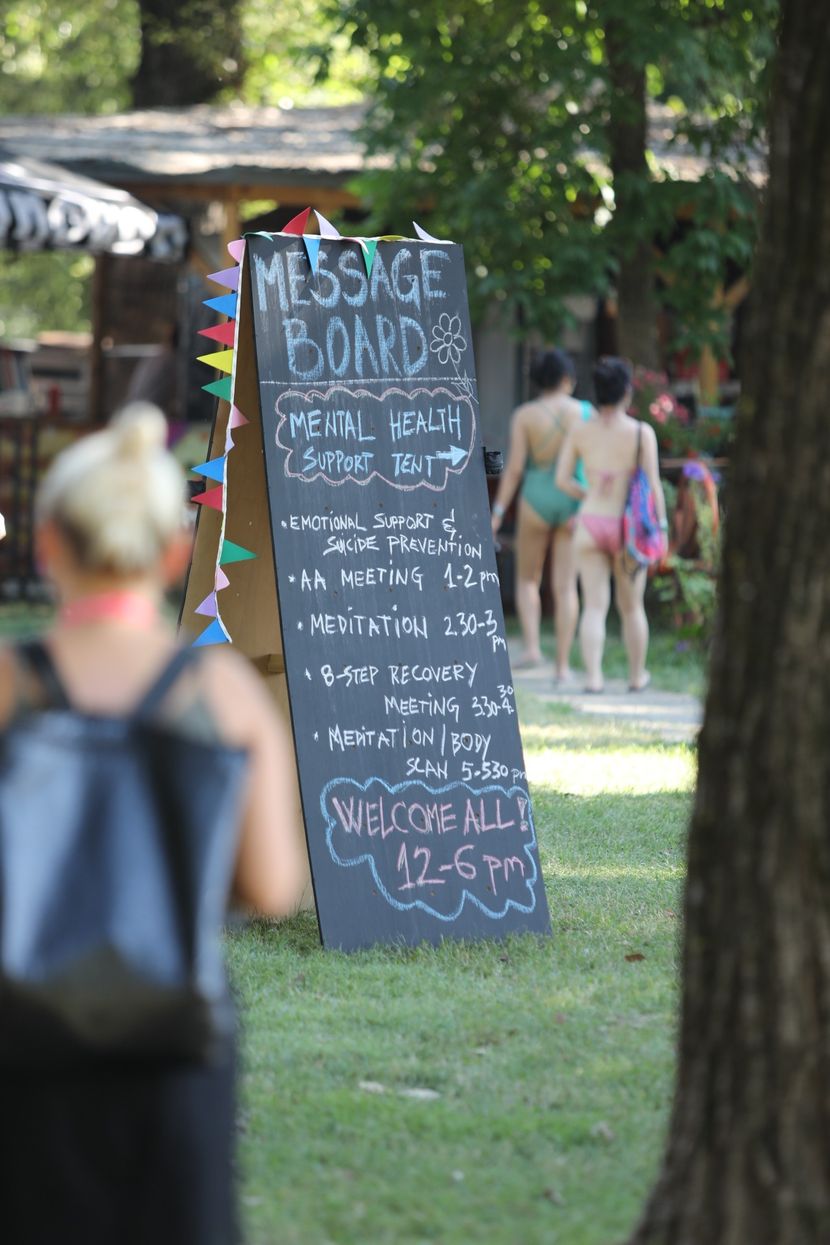 MESSAGE
BOARD
MENTAL HEALTH
SUPPORT TENT
• EMOTIONAL SUPPORT &
SUICIDE PREVENTION
• AA MEETING 1-2 pm
• MEDITATION 2.30-3
pm
• 8-STEP RECOVERY
MEETING 3.30-4.30
• MEDITATION/BODY
SCAN 5-530 pm
WELCOME ALL!
12-6 pm